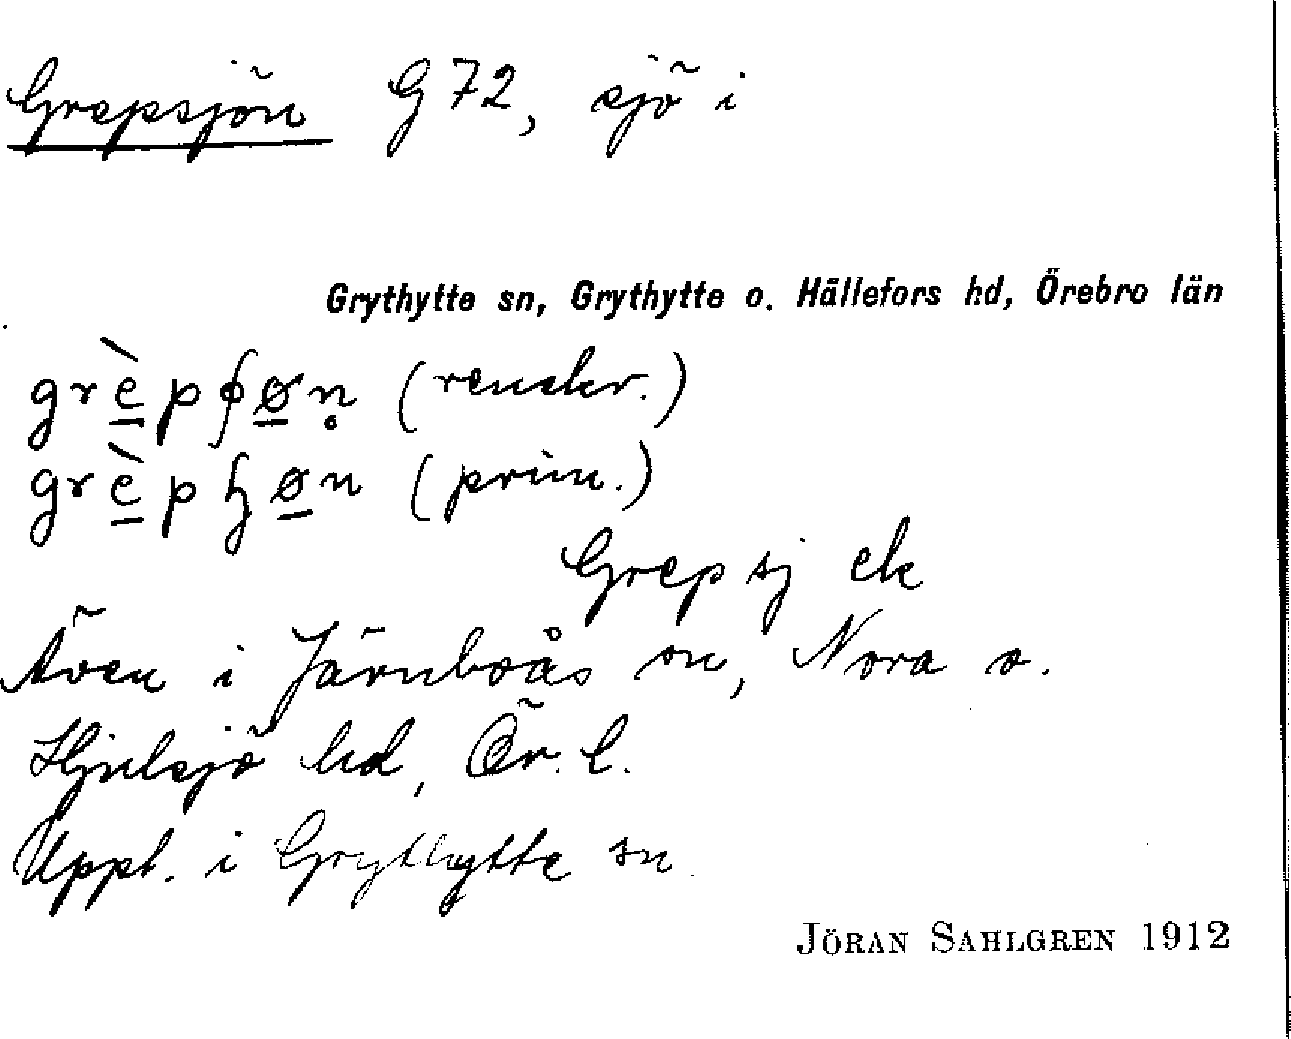 Grepsjön G 72, sjö i
Grythytte sn, Grythytte o. Hällefors hd, Örebro län
grè̱pʄø̱n̥ (renskr.)
grè̱pɧø̱n (prim.)
Grepsj ek
Även i Järnboås sn, Nora o.
Hjulsjö hd, Ör. l.
Uppt. i Grythytte sn.
JÖRAN SAHLGREN 1912